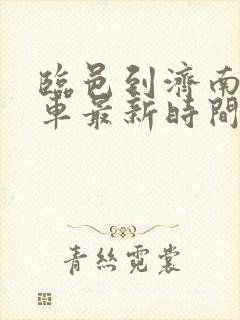 臨邑到濟南
車最新時間
青絲霓裳